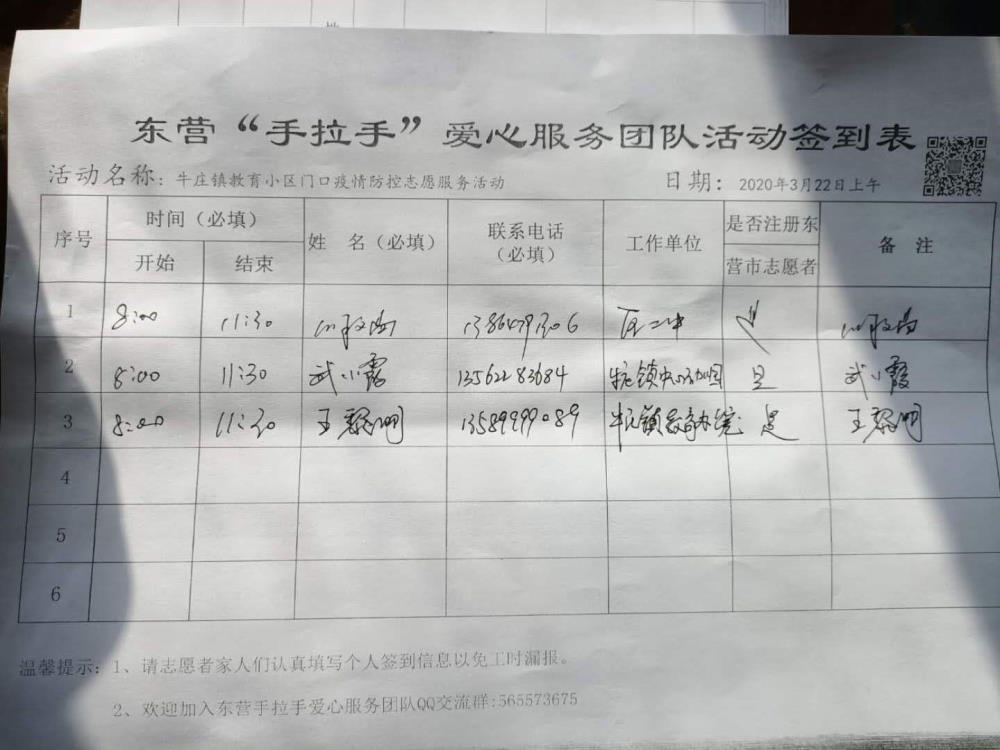 东营“手拉手”爱心服务团队活动签到表
活动名称：牛庄镇教育小区门口疫情防控志愿服务活动 日期：2020年3月22日上午
序号 时间（必填） 姓 名（必填） 联系电话（必填） 工作单位 是否注册东营市志愿者 备 注
开始 结束
1 8:00 11:30 是
2 8:00 11:30 武小霞 13562283684 是 武小霞
3 8:00 11:30 王黎明 13589999089 是 王黎明
4
5
6
温馨提示：1、请志愿者家人们认真填写个人签到信息以免工时漏报。
2、欢迎加入东营手拉手爱心服务团队QQ交流群:565573675